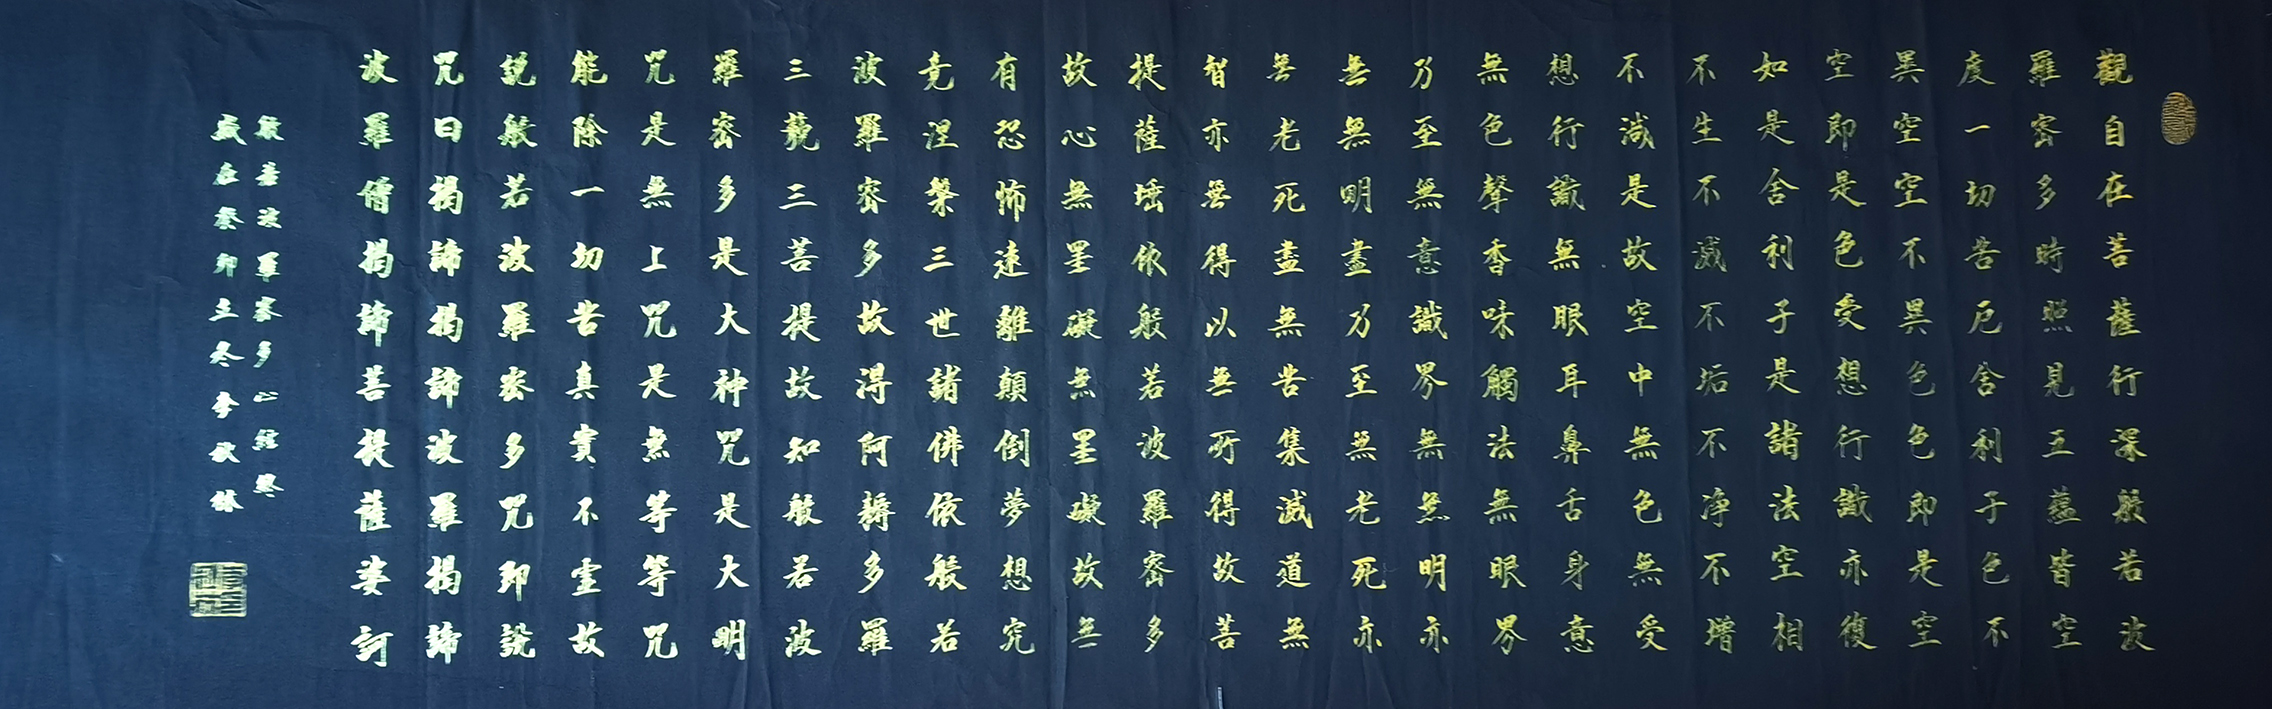 觀自在菩薩行深般若波
羅密多時照見五蘊皆空
度一切苦厄舍利子色不
異空空不異色色即是空
空即是色受想行識亦復
如是舍利子是諸法空相
不生不滅不垢不净不增
不減是故空中無色無受
想行識無眼耳鼻舌身意
無色聲香味觸法無眼界
乃至無意識界無無明亦
無無明盡乃至無老死亦
無老死盡無苦集滅道無
智亦無得以無所得故菩
提薩埵依般若波羅密多
故心無罣礙無罣礙故無
有恐怖遠離顛倒夢想究
竟涅槃三世諸佛依般若
波羅密多故得阿耨多羅
三藐三菩提故知般若波
羅密多是大神咒是大明
咒是無上咒是無等等咒
能除一切苦真實不虛故
說般若波羅密多咒即說
咒曰揭諦揭諦波羅揭諦
波羅僧揭諦菩提薩婆訶
般若波羅密多心經終
歲在癸卯立冬李